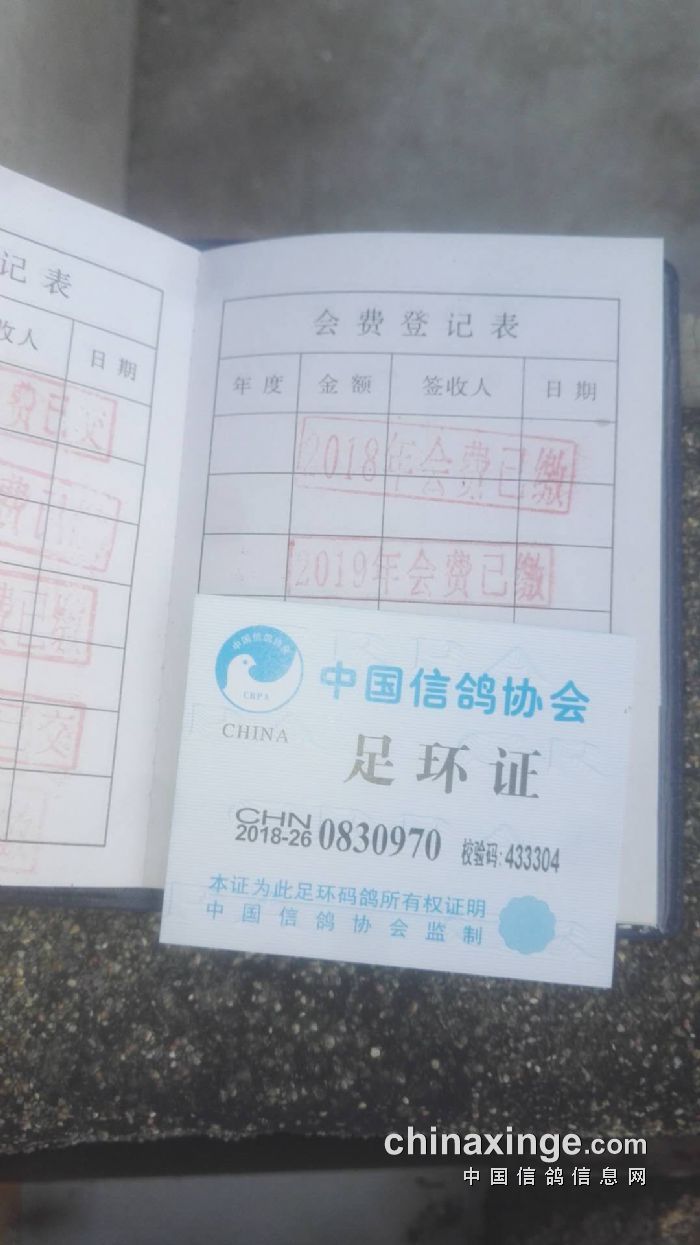 记表
收人 日期
费已交
费已
费已缴
已交
会费登记表
年度 金额 签收人 日期
2018年会费已缴
2019年会费已缴
中国信鸽协会
CRPA
CHINA
中国信鸽协会
足环证
CHN
2018-26 0830970 校验码:433304
本证为此足环码鸽所有权证明
中国信鸽协会监制
chinaxinge.com
中国信鸽信息网